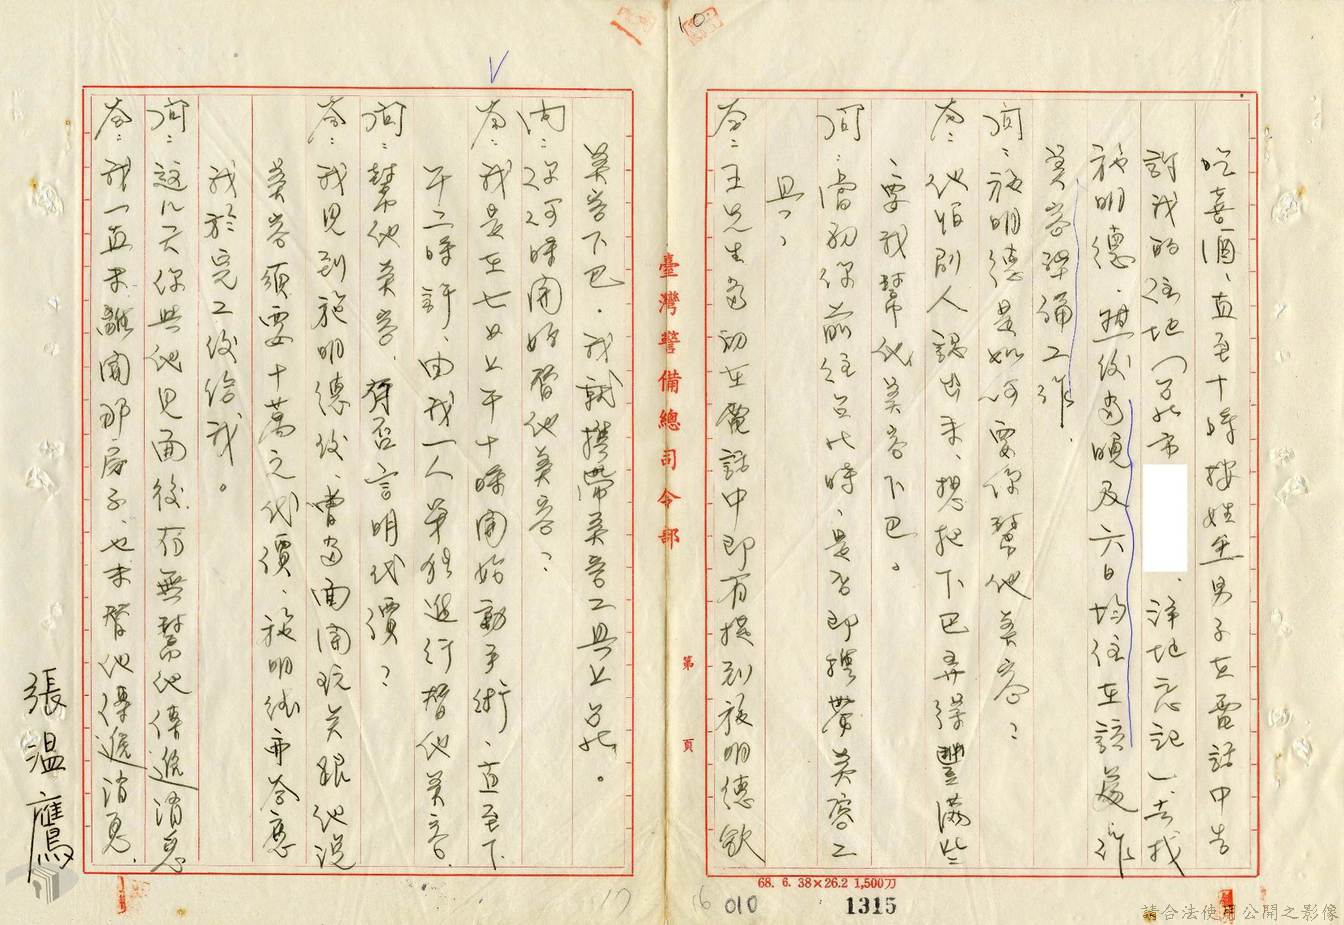 吃喜酒、直至十時接姓金男子在電話中告
訴我的住地(台北市　　、詳地忘記)去找
施明德、然後當晚及六日均住在該處作
美容準備工作.
問:施明德是如何要你幫他美容?
答:他怕別人認出來、想把下巴弄得豐滿些
要我幫他美容下巴。
問:當初你前往台北時、是否即携帶美容工
具?
答:王先生當初在電話中即有提到施明德欲
美容下巴.我就携帶美容工具上台北。
問:你何時開始替他美容?
答:我是在七日上午十時開始動手術、直至下
午二時許、由我一人單獨進行替他美容.
問:幫他美容、有否言明代價?
答:我見到施明德後、曾當面開玩笑跟他說
美容須要十萬元代價、施明德亦答應
我於完工後給我。
問:這几天你與他見面後、有無幫他傳遞消息
答:我一直未離開那房子、也未替他傳遞消息.
張溫鷹
臺灣警備總司令部
第　頁
68. 6. 38×26.2 1,500刀
16 010
1315
17
10
請合法使用公開之影像